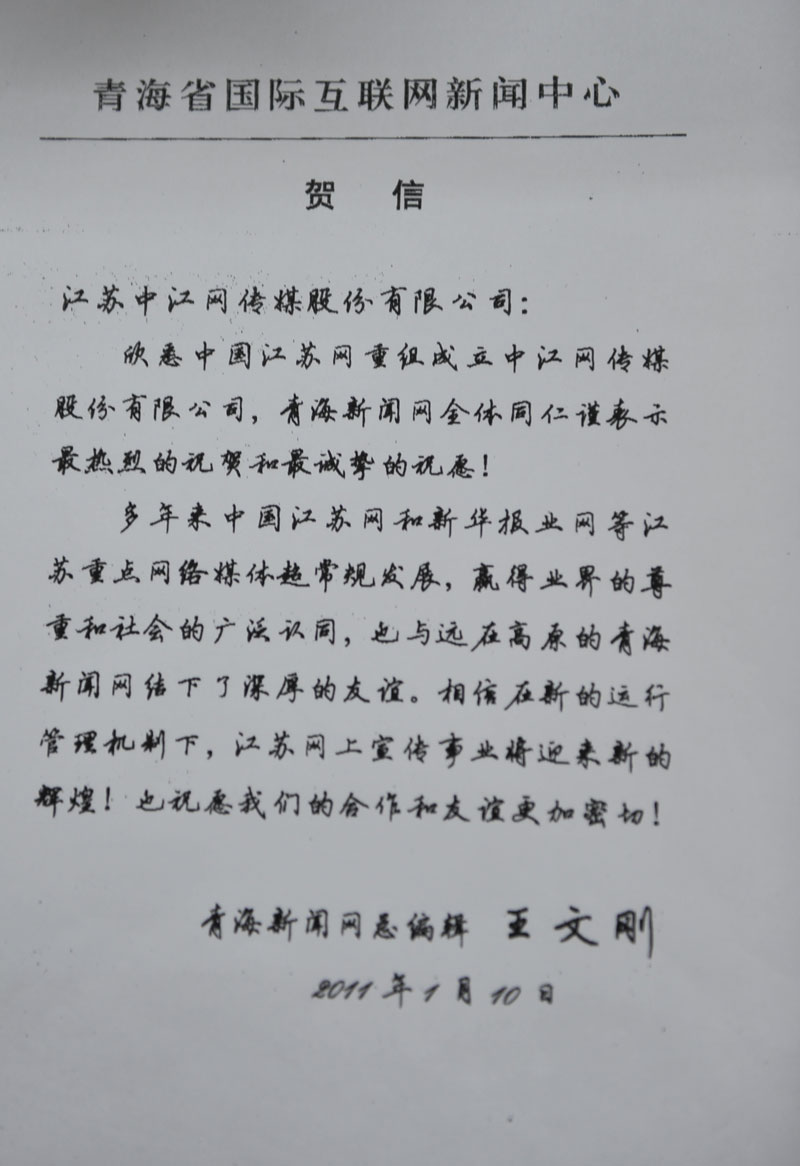 青海省国际互联网新闻中心
贺 信
江苏中江网传媒股份有限公司：
欣悉中国江苏网重组成立中江网传媒
股份有限公司，青海新闻网全体同仁谨表示
最热烈的祝贺和最诚挚的祝愿！
多年来中国江苏网和新华报业网等江
苏重点网络媒体超常规发展，赢得业界的尊
重和社会的广泛认同，也与远在高原的青海
新闻网结下了深厚的友谊。相信在新的运行
管理机制下，江苏网上宣传事业将迎来新的
辉煌！也祝愿我们的合作和友谊更加密切！
青海新闻网总编辑 王文刚
2011年1月10日